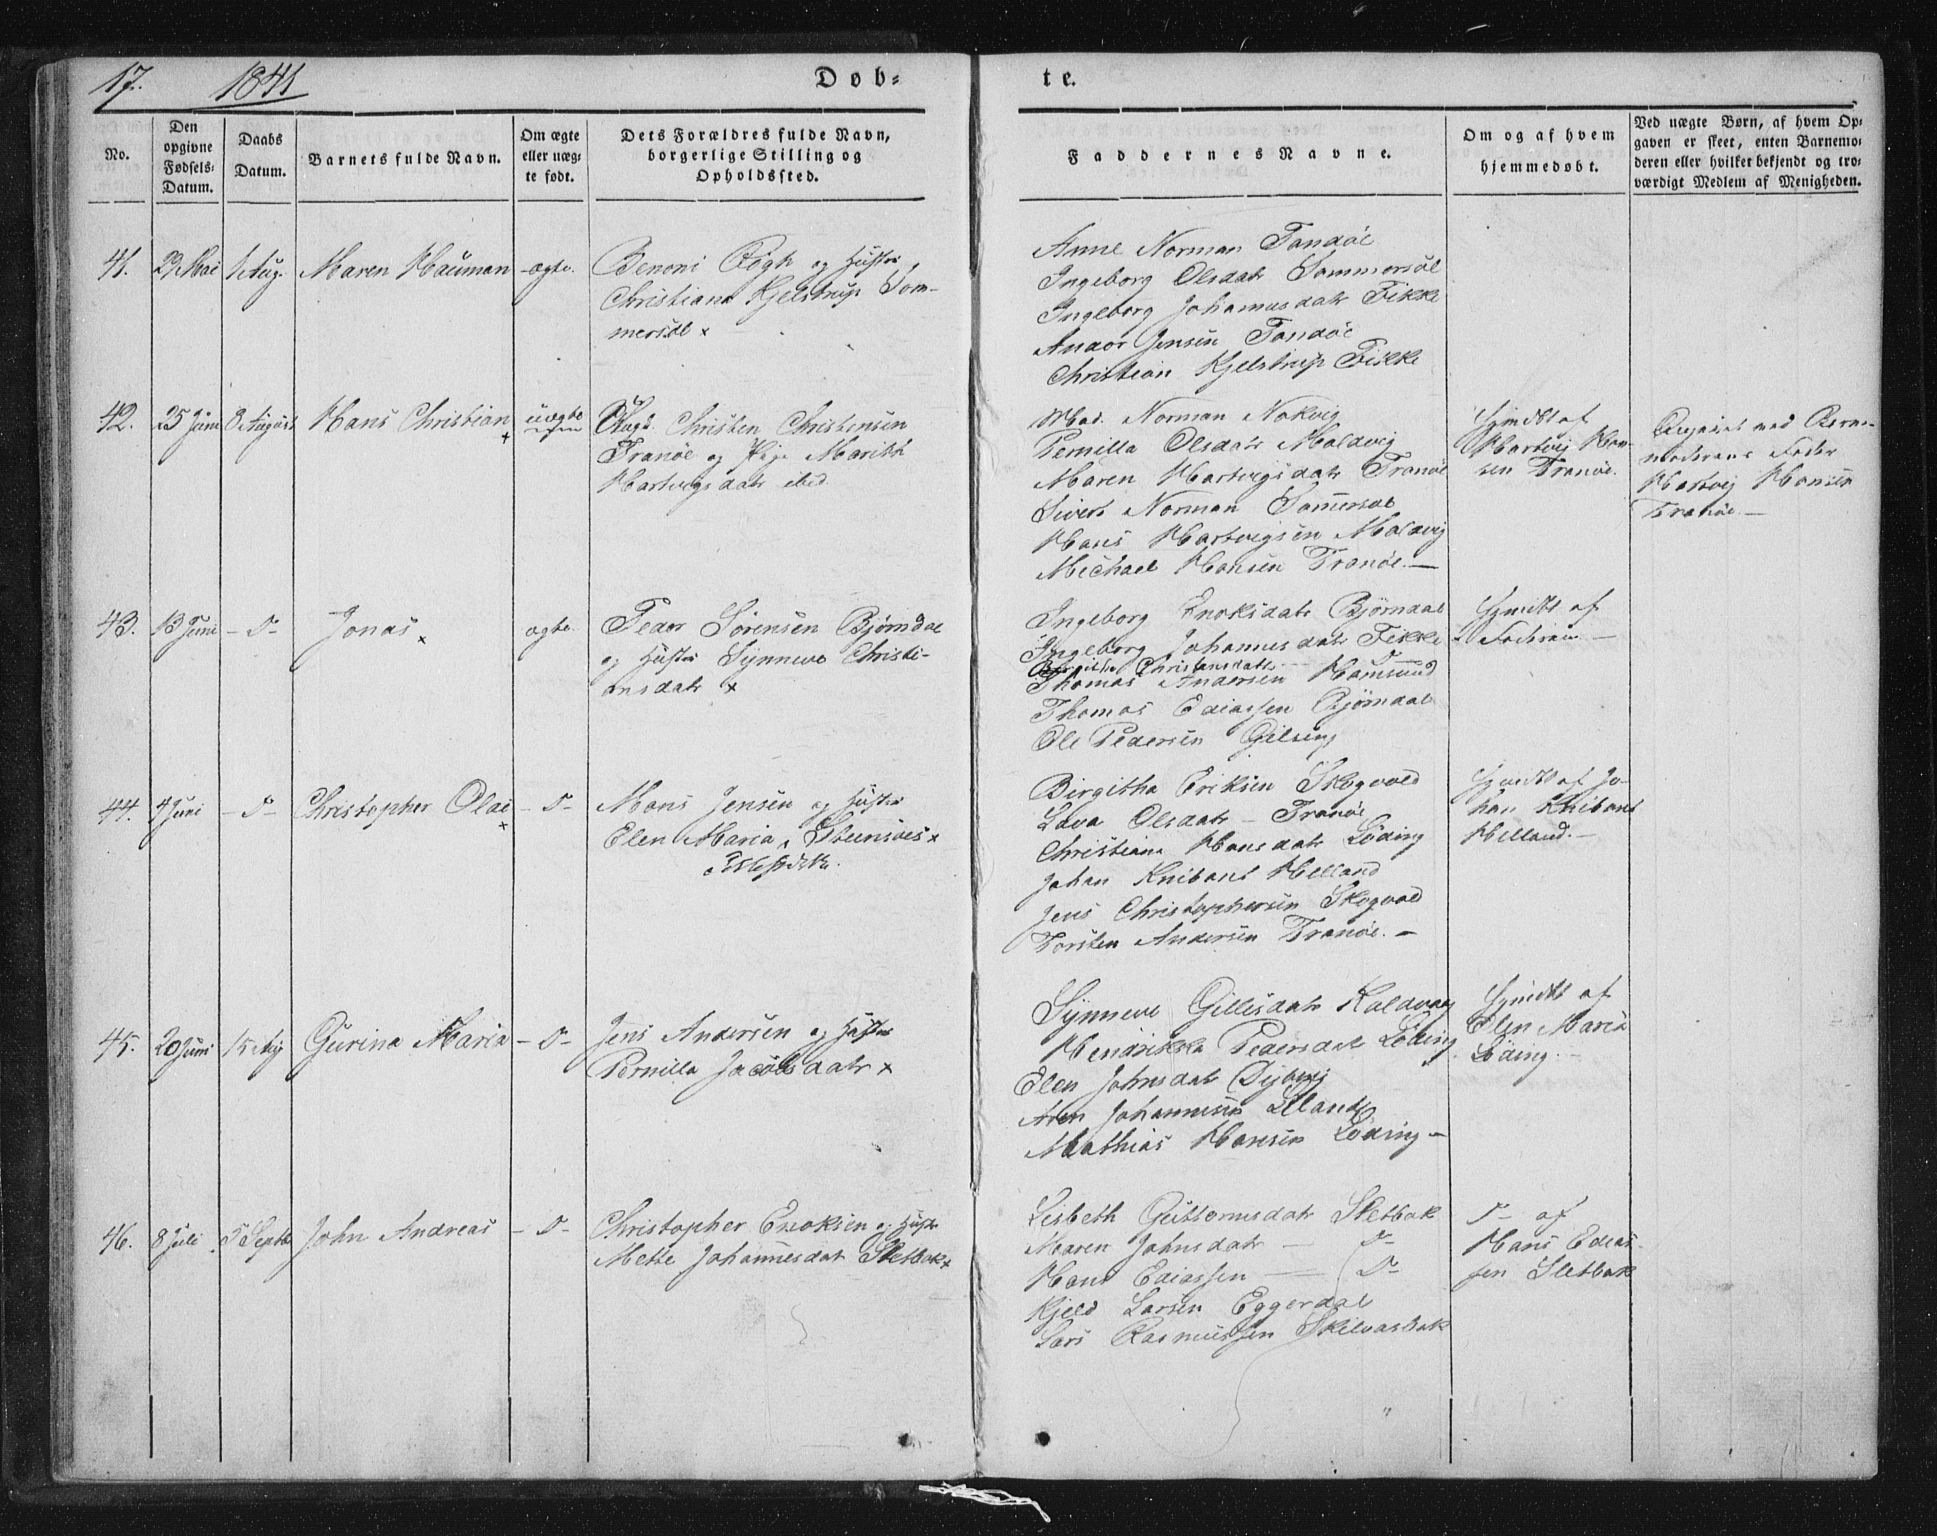 17. 1841 Døb= te.
No.
Den opgivne Fødsels-Datum.
Daabs Datum.
Barnets fulde Navn.
Om ægte eller uæg-te født.
Dets Forældres fulde Navn, borgerlige Stilling og Opholdssted.
Faddernes Navne.
Om og af hvem hjemmedøbt.
Ved uægte Børn, af hvem Op-gaven er skeet, enten Barnemo-deren eller hvilket bekjendt og tro-værdigt Medlem af Menigheden.
41. 29 Mai 1 Aug. Maren Hauman ægte.
Benoni Bøgh og Hustru
Christiana Kjelstrup Som-
mersæl x
Anne Norman Tandøe
Ingeborg Olsdatr Sommersæl
Ingeborg Johannesdatr Fikke
Andor Jensen Tandøe
Christian Kjelstrup Fikke
42. 25 Juni 8 August Hans Christian x uægte
Ungk. Christen Christensen
Tranøe og Pige Marith
Hartvigsdatr ibid
Mad. Norman Nakvig
Pernilla Olsdatr Maldvig
Maren Hartvigsdatr Tranøe
Sivert Norman Somersæl
Hans Hartvigsen Maldvig
Michael Hansen Tranøe. —
Hjmdbt af
Hartvig Han-
sen Tranøe.
Angivet ved Barne-
moderens Fader
Hartvig Hansen
Tranøe. —
43. 13 Juni — D — Jonas x ægte
Peder Sørensen Bjørndal
og Hustru Synneve Christi-
ansdatr x
Ingeborg Enoksdatr Bjørndal
Ingeborg Johannesdatr Fikke
Birgithe Christensdatr — D
Thomas Andersen Hamsund
Thomas Ediassen Bjørndal
Ole Pedersen Gilsing
Hjmdbt af
Faderen —
44. 4 Juni — D — Christopher Olai x — D —
Mons Jensen og Hustru
Elen Maria, Steensnes x
Chri­stopher Olai
Birgitha Eriksen Skogvold
Lava Olsdatr — Tranøe
Christiana Hansdatr Løding
Johan Knibant Helland
Jens Christophersen Skogvold
Torsten Andersen Tranøe. —
Hjmdbt af Jo-
han Knibant
Helland. —
45. 20 Juni 15 Aug Gurina Maria — D —
Jens Andersen og Hustru
Pernilla Jacobsdatr x
Synneve Gillesdatr Kaldvaag
Hendrikke Pedersdatr Løding
Elen Johnsdatr Dyberg
Aren Johannesen Elland
Mathias Hansen Løding —
Hjmdbt af
Elen Maria
Løding. —
46. 8 Juli. 5 Septb John Andreas — D —
Christopher Enoksen og Hustr
Mette Johannesdatr Sletbak x
Lisbeth Guttormsdatr Sletbak
Maren Johnsdatr — D —
Hans Ediassen — D —
Kjeld Larsen Eggerdal
Lars Rasmussen Skilvasbak
D — af
Hans Edias-
sen Sletbak